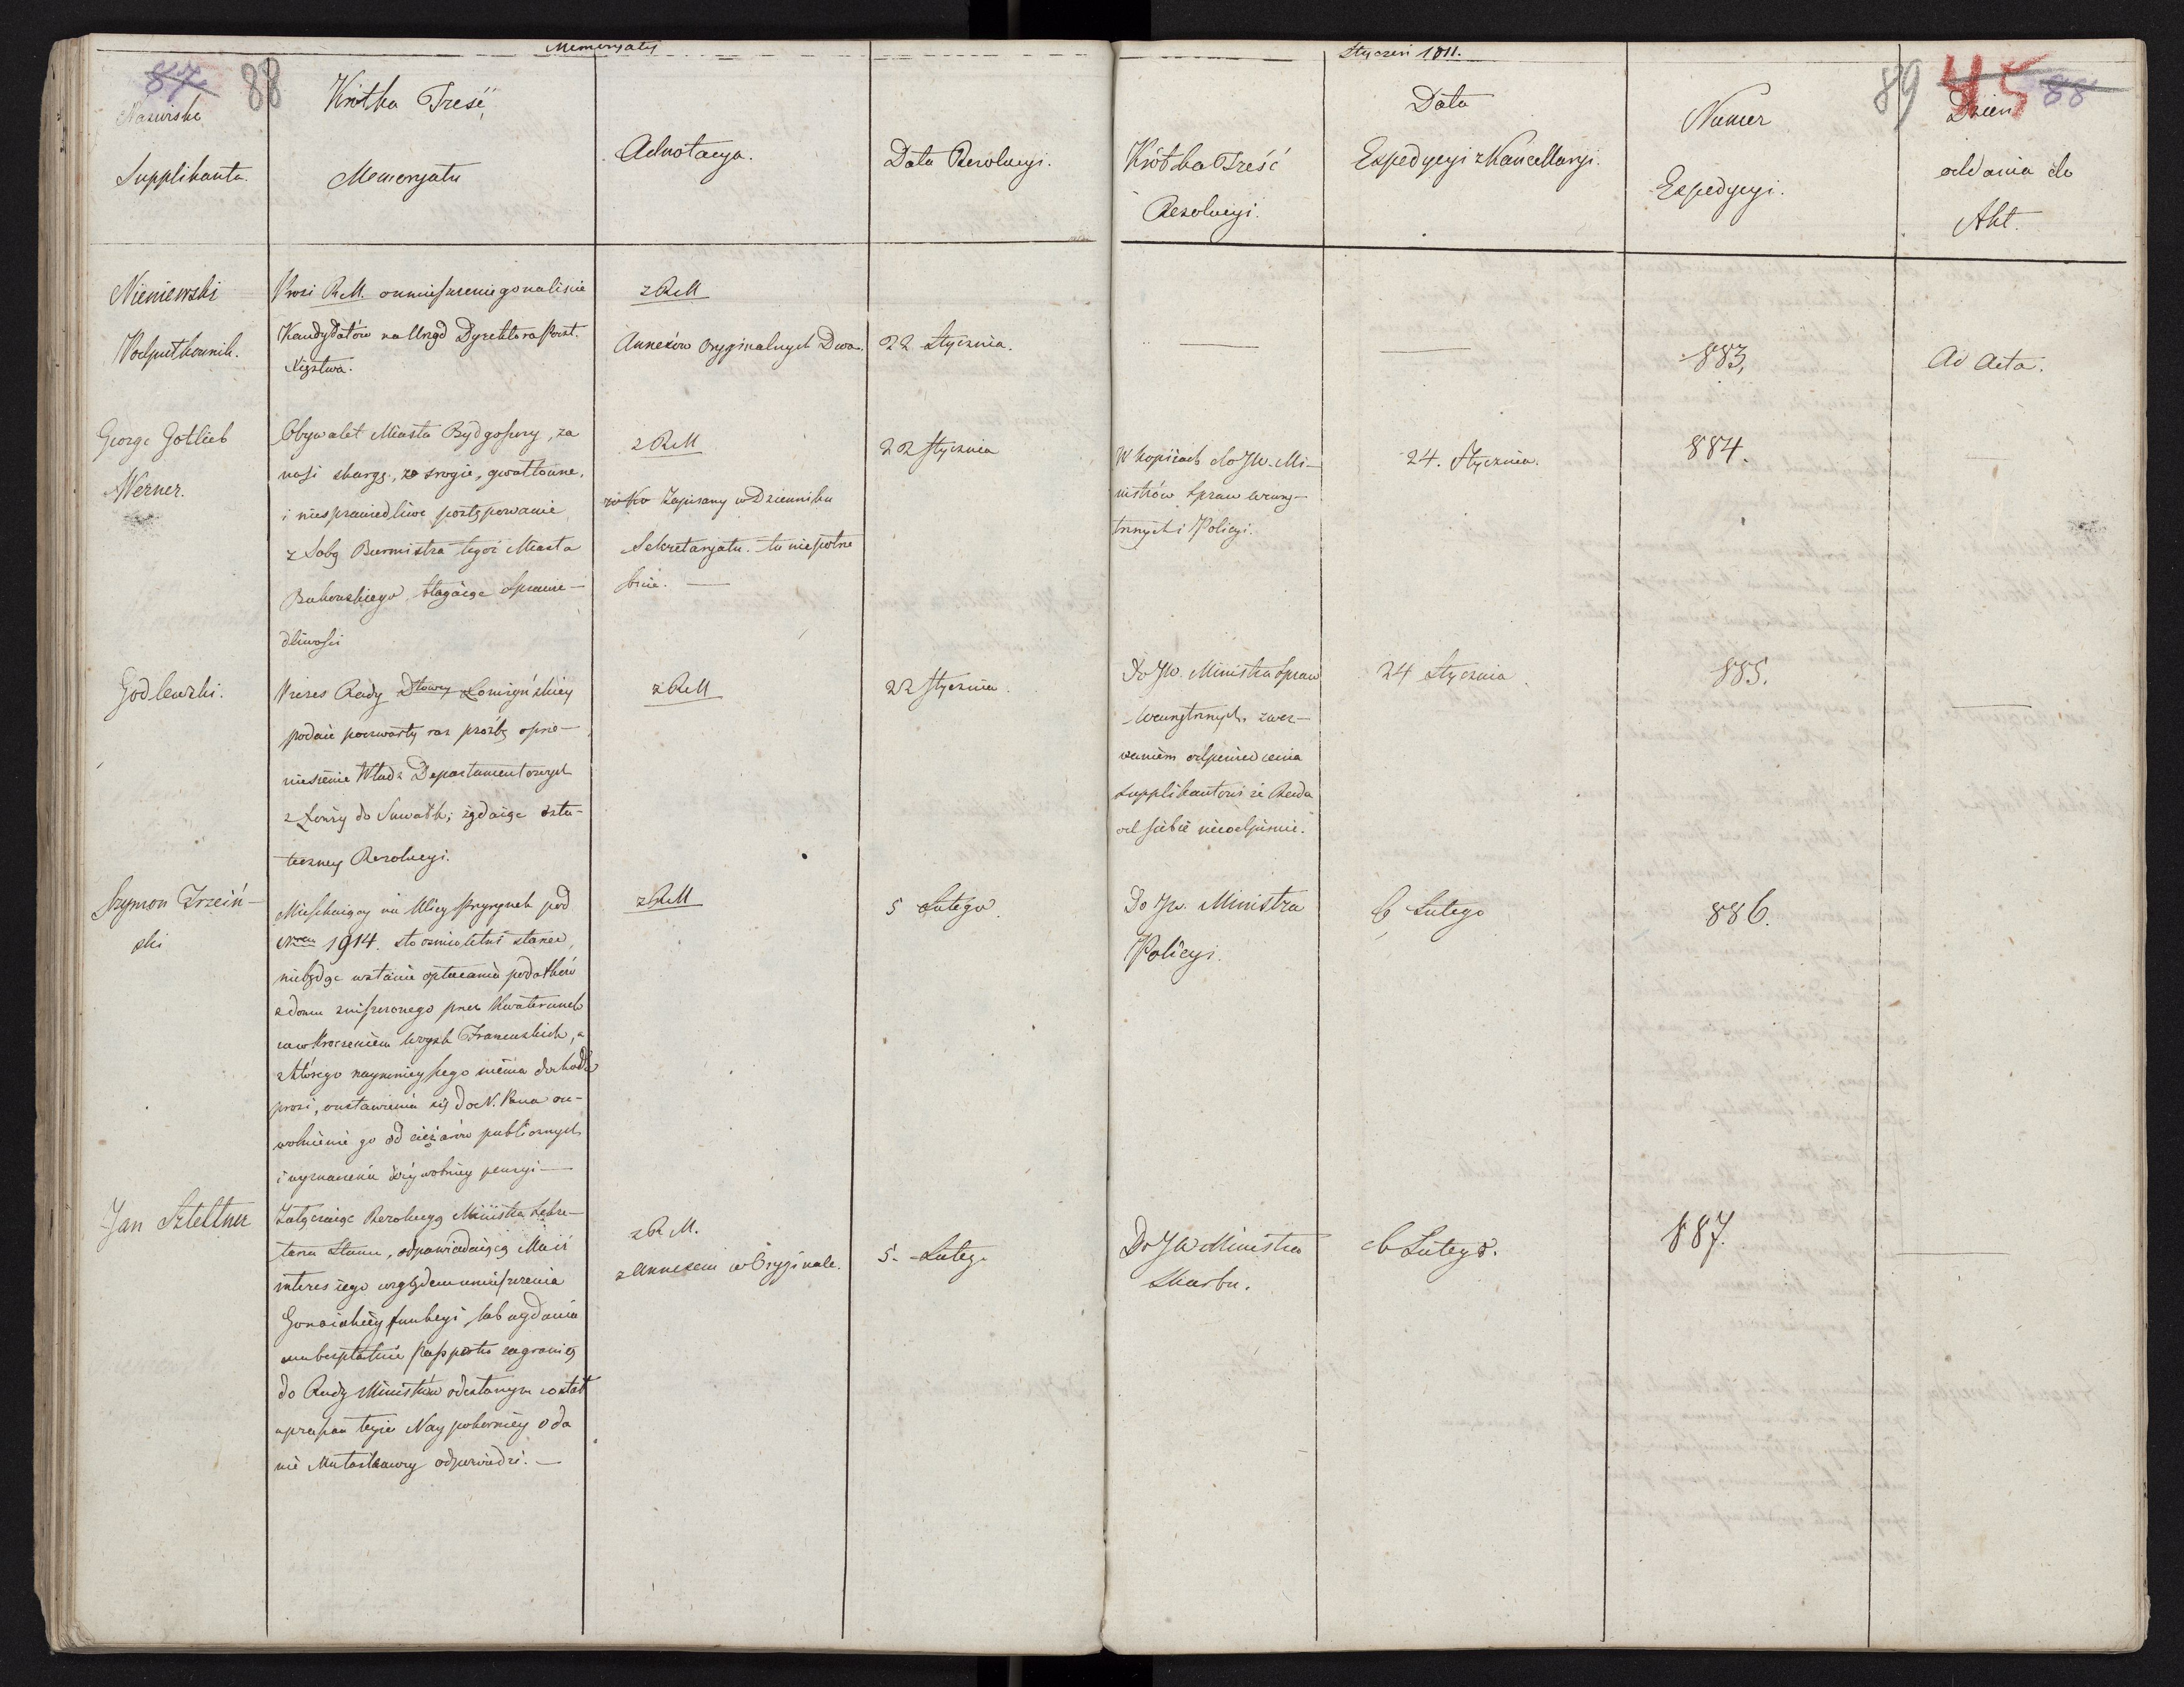 Memoryały
Styczeń 1811.
87 88
89 45 88
Nazwisko
Supplikanta.
Krótka Treść
Memoryału
Adnotacya.
Data Rezolucyi.
Krótka Treść
Rezolucyi.
Data
Expedycyi z Kancellaryi.
Numer
Expedycyi.
Dzień
oddania do
Akt.
Nieniewski
Podpułkownik.
Prosi R.M. o umieszczenie go na liście
Kandydatów na Urząd Dyrektora Poczt.
Xięstwa.
z RM
Annexów Oryginalnych Dwa.
22 Stycznia.
883,
Ad Acta.
George Gotlieb
Werner.
Obywatel Miasta Bydgoszczy, za
nosi skargę, za srogie, gwałtowne,
i niesprawiedliwe postępowanie
z Sobą Burmistrza tegoż Miasta
błagaiąc Sprawie-
dliwości
z RM
Zapisany w Dzienniku
Sekretaryatu. tu niepotrze
bnie.
22 Stycznia
W kopiiach do JW. Mi-
nistrów Spraw Wewnę-
trznych i Policyi.
24. Stycznia.
884.
Godlewski.
Prezes Rady Dtowey Łomżyńskiey
podaie poczwarty raz prośbę o prze-
niesienie Władz Departamentowych
z Łomży do Suwałk; żądaiąc osta-
teczney Rezolucyi.
z RM
22 Stycznia.
Do JW. Ministra Spraw
Wewnętrznych, z wez-
waniem odpowiedzenia
Supplikantowi że Rada
od siebie nieodpisuie.
24 Stycznia.
885.
Szymon Trzciń-
ski
Mieszkaiący na Ulicy Przyrynek pod
Nrem 1914. sto ośmioletni starzec,
niebędąc w stanie opłacania podatków
z domu zniszczonego przez Kwaterunek
za wkroczeniem woysk Francuskich, a
z którego naymnieyszego niema dochodu
prosi, o wstawienie się do N. Pana o u-
wolnienie go od ciężarów publicznych
i wyznaczenie dożywotniey pensyi
z RM
5 Lutego.
Do JW. Ministra
Policyi.
6 Lutego
886.
Jan Sztettner
Załączaiąc Rezolucyą Ministra Sekre-
tarza Stanu, odpowiadaiącą Mu iż
interes iego względem umieszczenia
funkcyi lub wydania
mu bezpłatnie Paszportu zagranicę
do Rady Ministrów odesłanym został
uprasza teyże Naypokorniey o da
nie Mu łaskawey odpowiedzi.
z R M.
z Annexem w Oryginale.
5. Lutego
Do JW Ministra
Skarbu.
6 Lutego.
887.